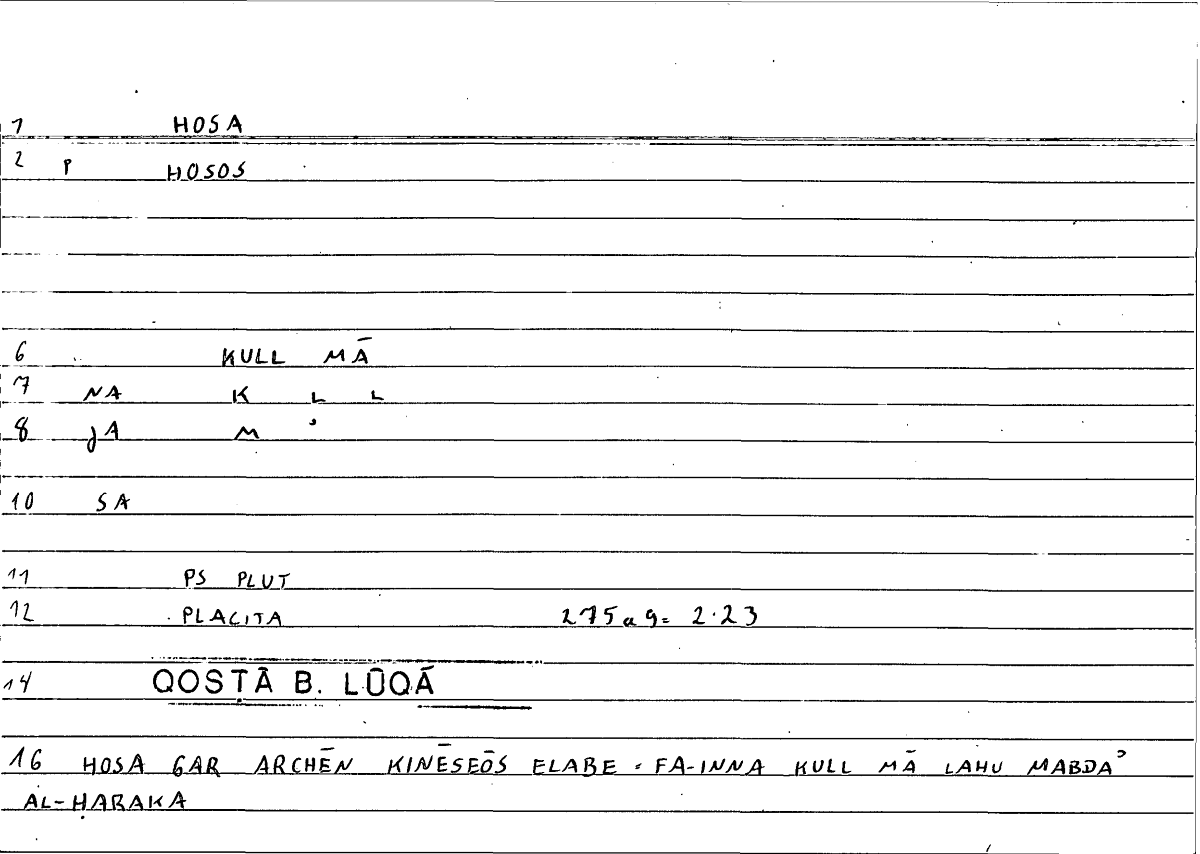 1 HOSA
2 P HOSOS
6 KULL MĀ
7 NA K L L
8 JA M ʾ
10 SA
11 PS PLUT
12 PLACITA 275a9= 2.23
14 QOSṬĀ B. LŪQĀ
16 HOSA GAR ARCHĒN KINĒSEŌS ELABE = FA-INNA KULL MĀ LAHU MABDAʾ
AL-ḤARAKA